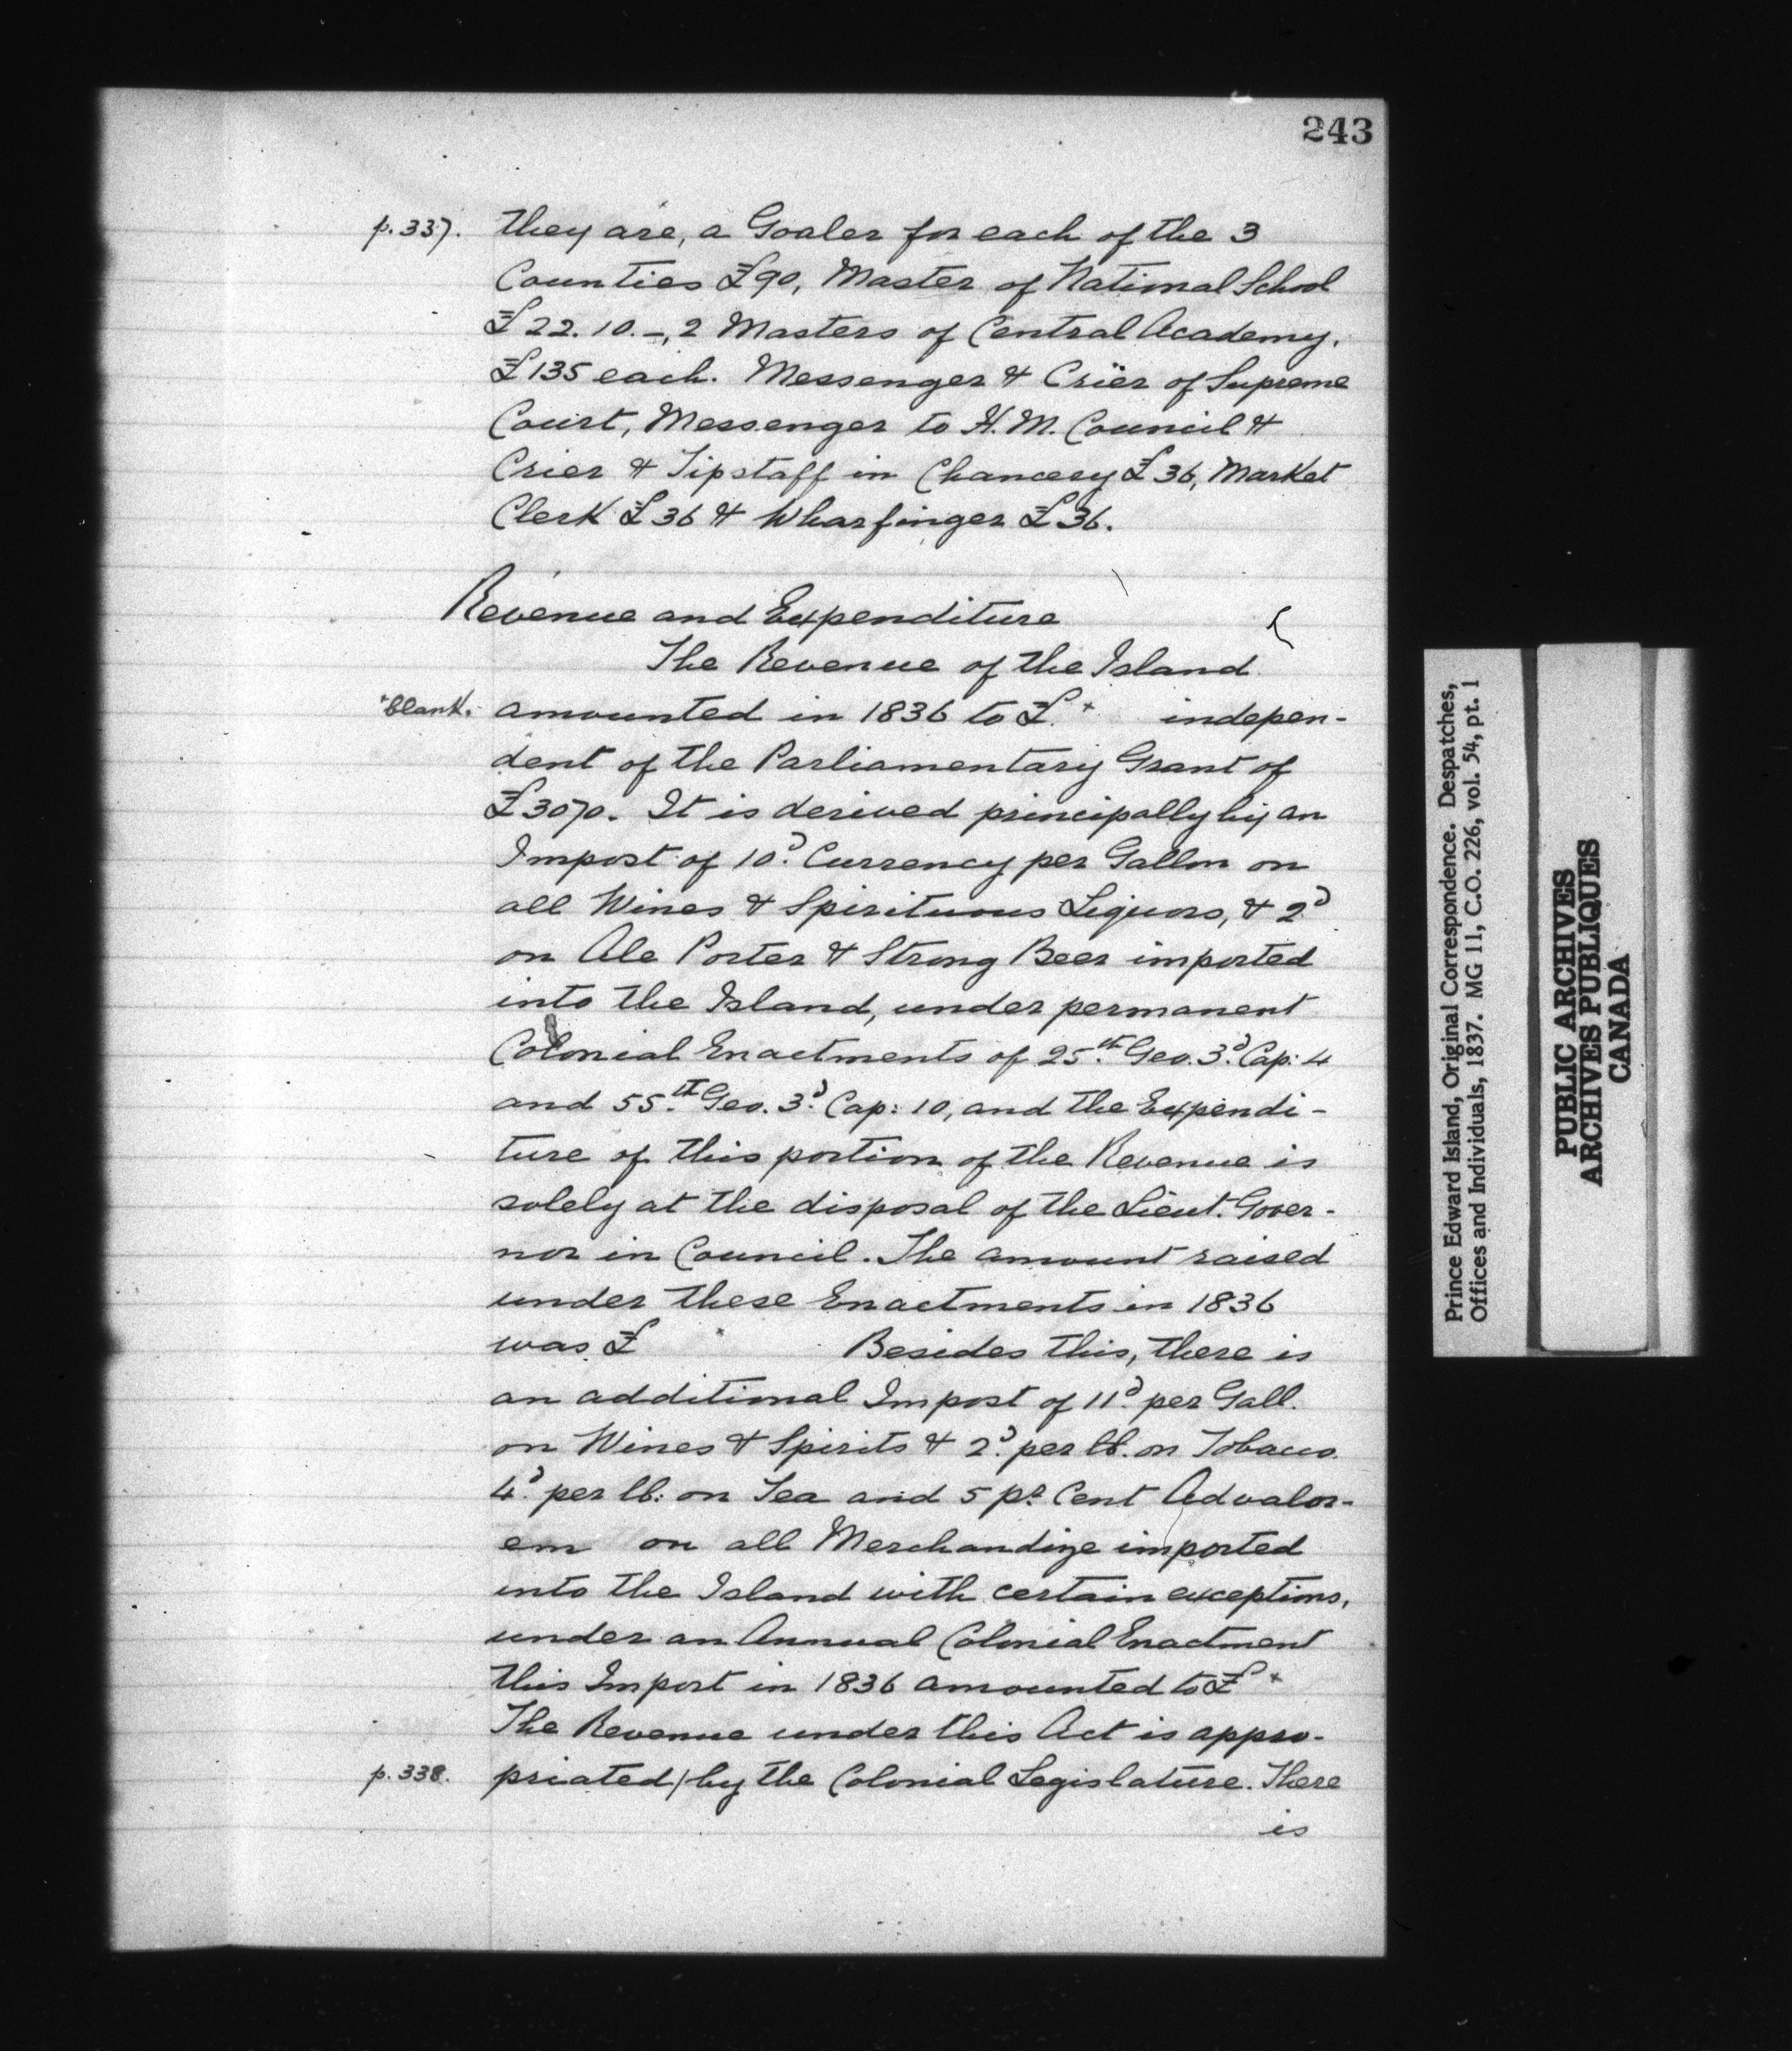 243
p.337. they are, a Goaler for each of the 3
Counties £90, Master of National School
£22.10.-, 2 Masters of Central Academy.
£135 each. Messenger & Crier of Supreme
Court, Messenger to H.M. Council &
Crier & Tipstaff in Chancery £36, Market
Clerk £36 & Wharfinger £36.
Revenue and Expenditure
The Revenue of the Island
+blank. amounted in 1836 to £.+ indepen-
dent of the Parliamentary Grant of
£3070. It is derived principally by an
Impost of 10d. Currency per Gallon on
all Wines & Spirituous Liquors, & 2d
on Ale Porter & Strong Beer imported
into the Island, under permanent
Colonial Enactments of 25th Geo. 3d. Cap: 4
and 55th Geo. 3d. Cap: 10, and the Expendi-
ture of this portion of the Revenue is
solely at the disposal of the Lieut. Gover-
nor in Council. The amount raised
under these Enactments in 1836
was £ Besides this, there is
an additional Impost of 11d. per Gall.
on Wines & Spirits & 2d. per lb. on Tobacco.
4d. per lb: on Tea and 5 pr. Cent Advalor-
em on all Merchandize imported
into the Island with certain exceptions,
under an Annual Colonial Enactment
this Impost in 1836 amounted to £+
The Revenue under this Act is appro-
p.338. priated/by the Colonial Legislature. There
is
Prince Edward Island, Original Correspondence. Despatches,
Offices and Individuals, 1837. MG 11, C.O. 226, vol. 54, pt. 1
PUBLIC ARCHIVES
ARCHIVES PUBLIQUES
CANADA